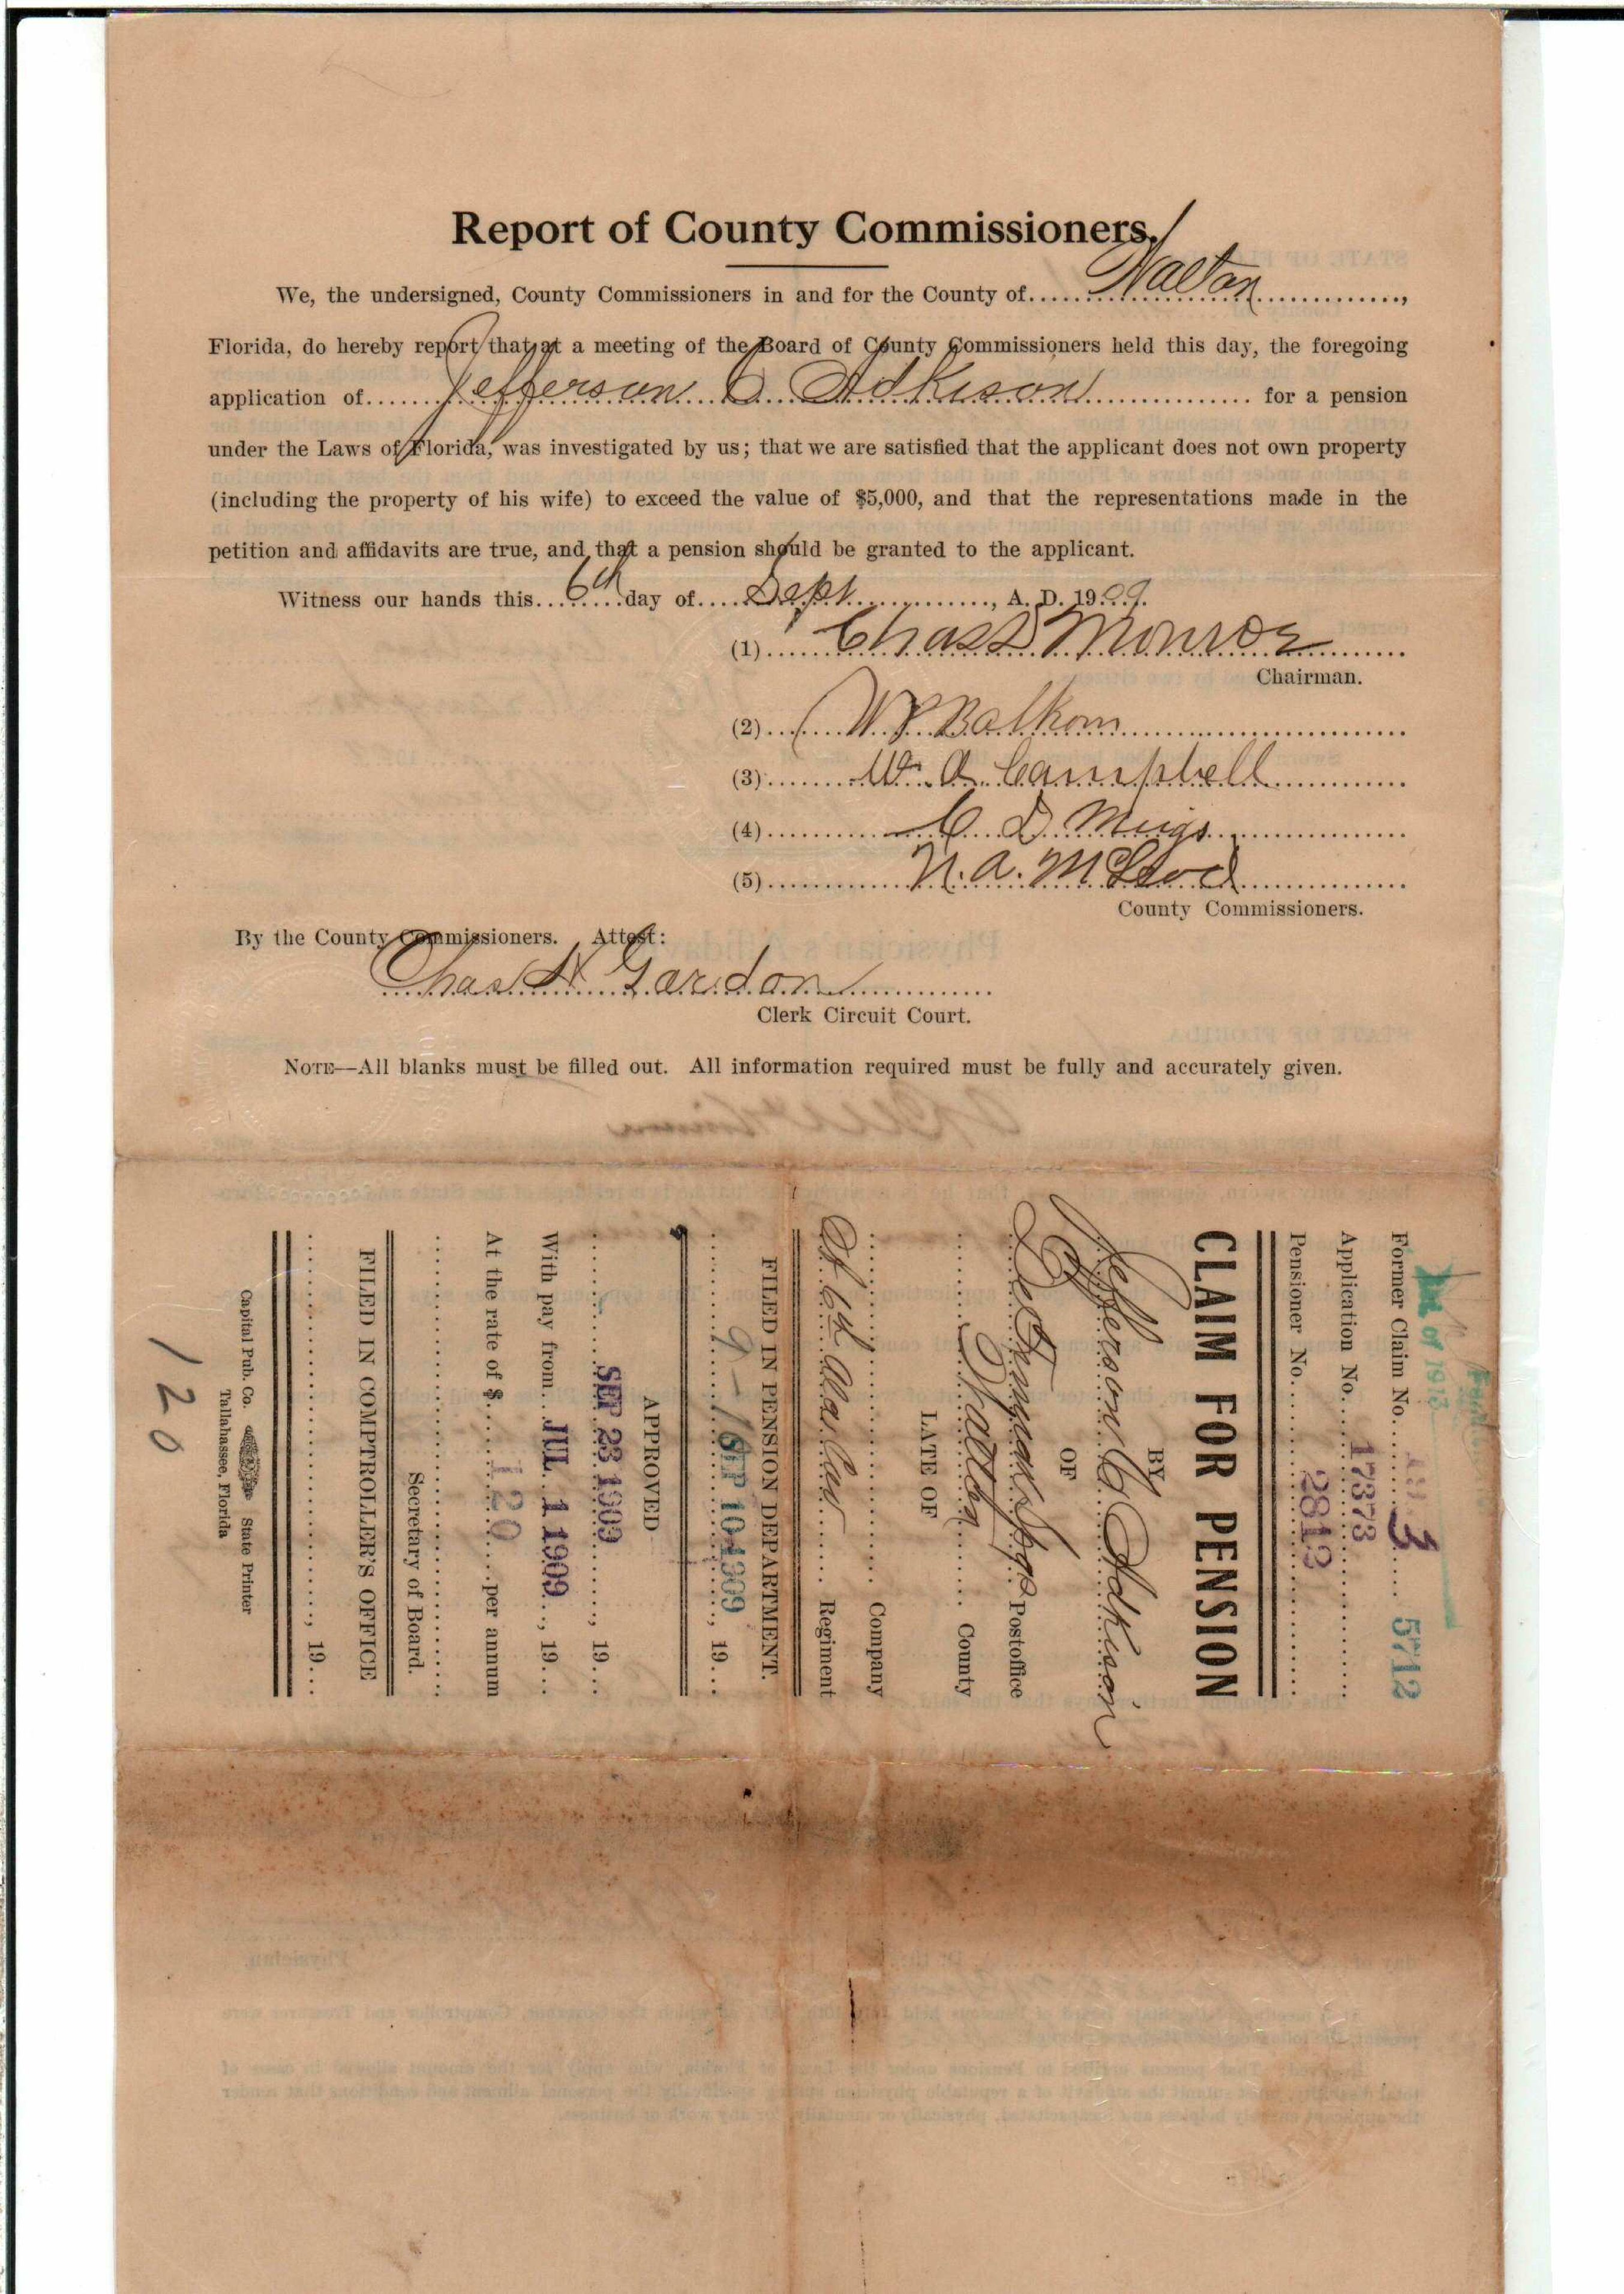 Report of County Commissioners.
We, the undersigned, County Commissioners in and for the County of Walton,
Florida, do hereby report that at a meeting of the Board of County Commissioners held this day, the foregoing
application of Jefferson C Adkison for a pension
under the Laws of Florida, was investigated by us; that we are satisfied that the applicant does not own property
(including the property of his wife) to exceed the value of $5,000, and that the representations made in the
petition and affidavits are true, and that a pension should be granted to the applicant.
Witness our hands this 6th day of Sept, A. D. 1909.
(1) Chas D Monroe
Chairman.
(2) W P Balkom
(3) W. A. Campbell
(4) C D Meigs
(5) N. A. McLeod
County Commissioners.
By the County Commissioners. Attest:
Chas H Gordon
Clerk Circuit Court.
NOTE—All blanks must be filled out. All information required must be fully and accurately given.
of 1913
Former Claim No. 3 5712
Application No. 17373
Pensioner No. 2813
CLAIM FOR PENSION
BY
Jefferson C Adkison
OF
DeFuniak Spgs Postoffice
Walton County
LATE OF
Company
6th Ala Cav Regiment
FILED IN PENSION DEPARTMENT.
SEP 10 1909, 19
APPROVED
SEP 23 1909, 19
With pay from JUL 1 1909, 19
At the rate of $ 120 per annum
Secretary of Board.
FILED IN COMPTROLLER'S OFFICE
, 19
Capital Pub. Co. State Printer
Tallahassee, Florida
120